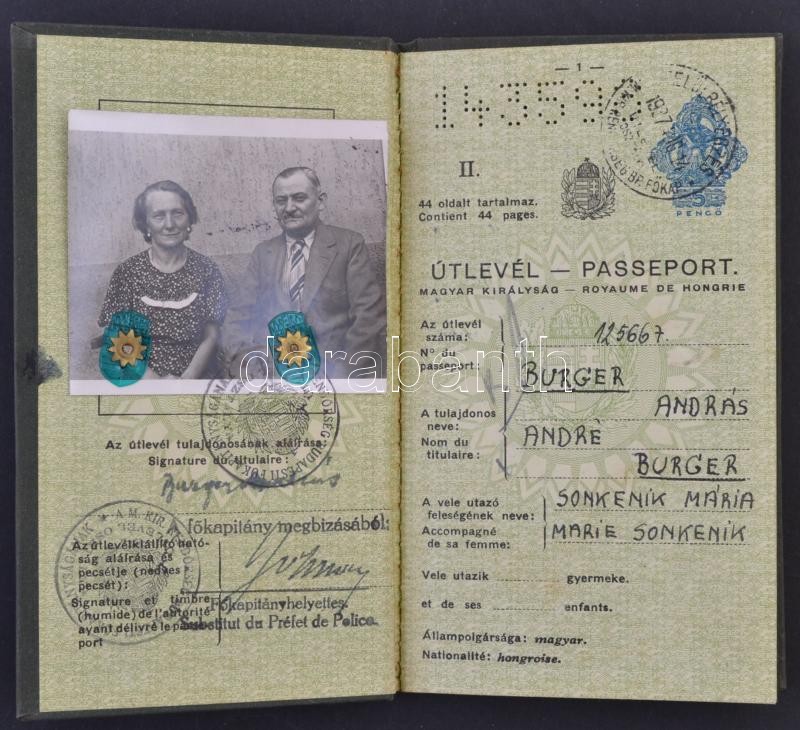 Az útlevél tulajdonosának aláírása:
Signature du titulaire:
főkapitány megbizásából:
Az útlevélkiállító ható-
ság aláírása és
pecsétje (nedves
pecsét):
Signature et timbre
(humide) de l'autorité
ayant délivré le passe-
port
Főkapitányhelyettes.
Substitut du Préfet de Police.
— 1 —
II.
44 oldalt tartalmaz.
Contient 44 pages.
5
PENGŐ
ÚTLEVÉL — PASSEPORT.
MAGYAR KIRÁLYSÁG — ROYAUME DE HONGRIE
Az útlevél
száma:
N° du
passeport:
125667.
BURGER
ANDRÁS
A tulajdonos
neve:
Nom du
titulaire:
ANDRÈ
BURGER
A vele utazó
feleségének neve:
Accompagné
de sa femme:
SONKENIK MÁRIA
MARIE SONKENIK
Vele utazik gyermeke.
et de ses enfants.
Állampolgársága: magyar.
Nationalité: hongroise.
darabanth